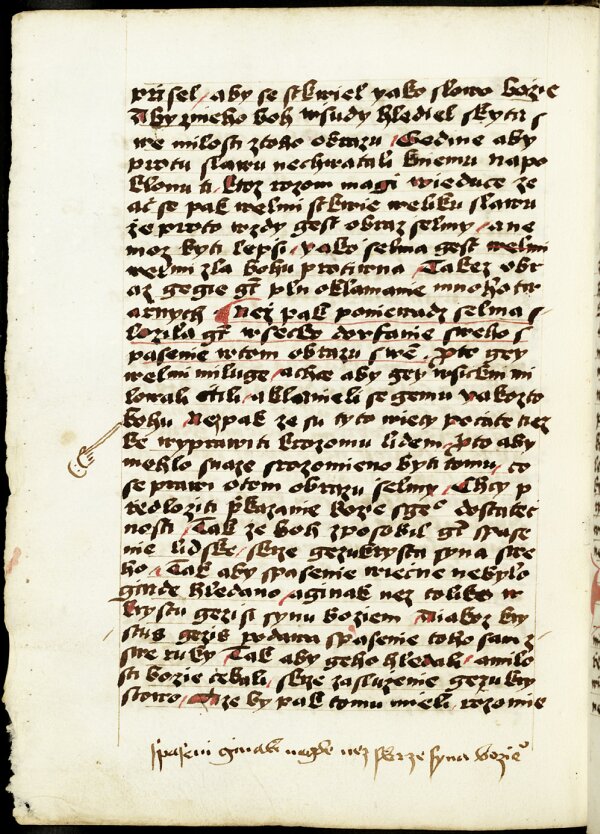 przisel / aby se stkwiel yako slowo bozie
Aby znieho boh wsudy hlediel skyta s
we milosti ztoho obrazu / Gedine aby
protu slawu nechwatali knemu napo
klonu ti / ktoz rozom magi wieduce ze
ač se pak welmi stkwie weliku slawu
że proto wzdy gest obraz selmy / ane
moz byti lepsi / yako selma gest welmi
welmi zla bohu protiwna / Takez obr
az gegie gt pln oklamanie mnohotw
arnych / Nez pak poniewadz selma s
lozila gt wsecko dorfanie sweho s
pasenie wtom obrazu swe / pto gey
welmi miluge / achce aby gey wsickni mi
lowali ctili / aklanieli se gemu yakozto
bohu / Nezpak ze su tyto wiecy pocate tiez
ke wyprawiti krozomu lidem / pto aby
mohlo snaze srozomieno byti tomu / co
se prawi otom obrazu selmy / Chcy p
riedloziti prikazanie bozie sge dostatec
nosti / Tak ze boh zposobil gt spase
nie lidske / skrze gezukrysta syna swe
ho / Tak aby spasenie wiecne nebylo
ginde hledano / aginak nez toliko w
krystu gezisi synu boziem / Aiakoz kry
stus gezis podawa spasenie toho sam z
swe ruky / Tak aby geho hledali / amilo
sti bozie cekali / skrze zasluzenie gezukry
stowo / Coze by pak tomu mieli / rozomie
spaseni ginak nagde nez skrze syna bozie